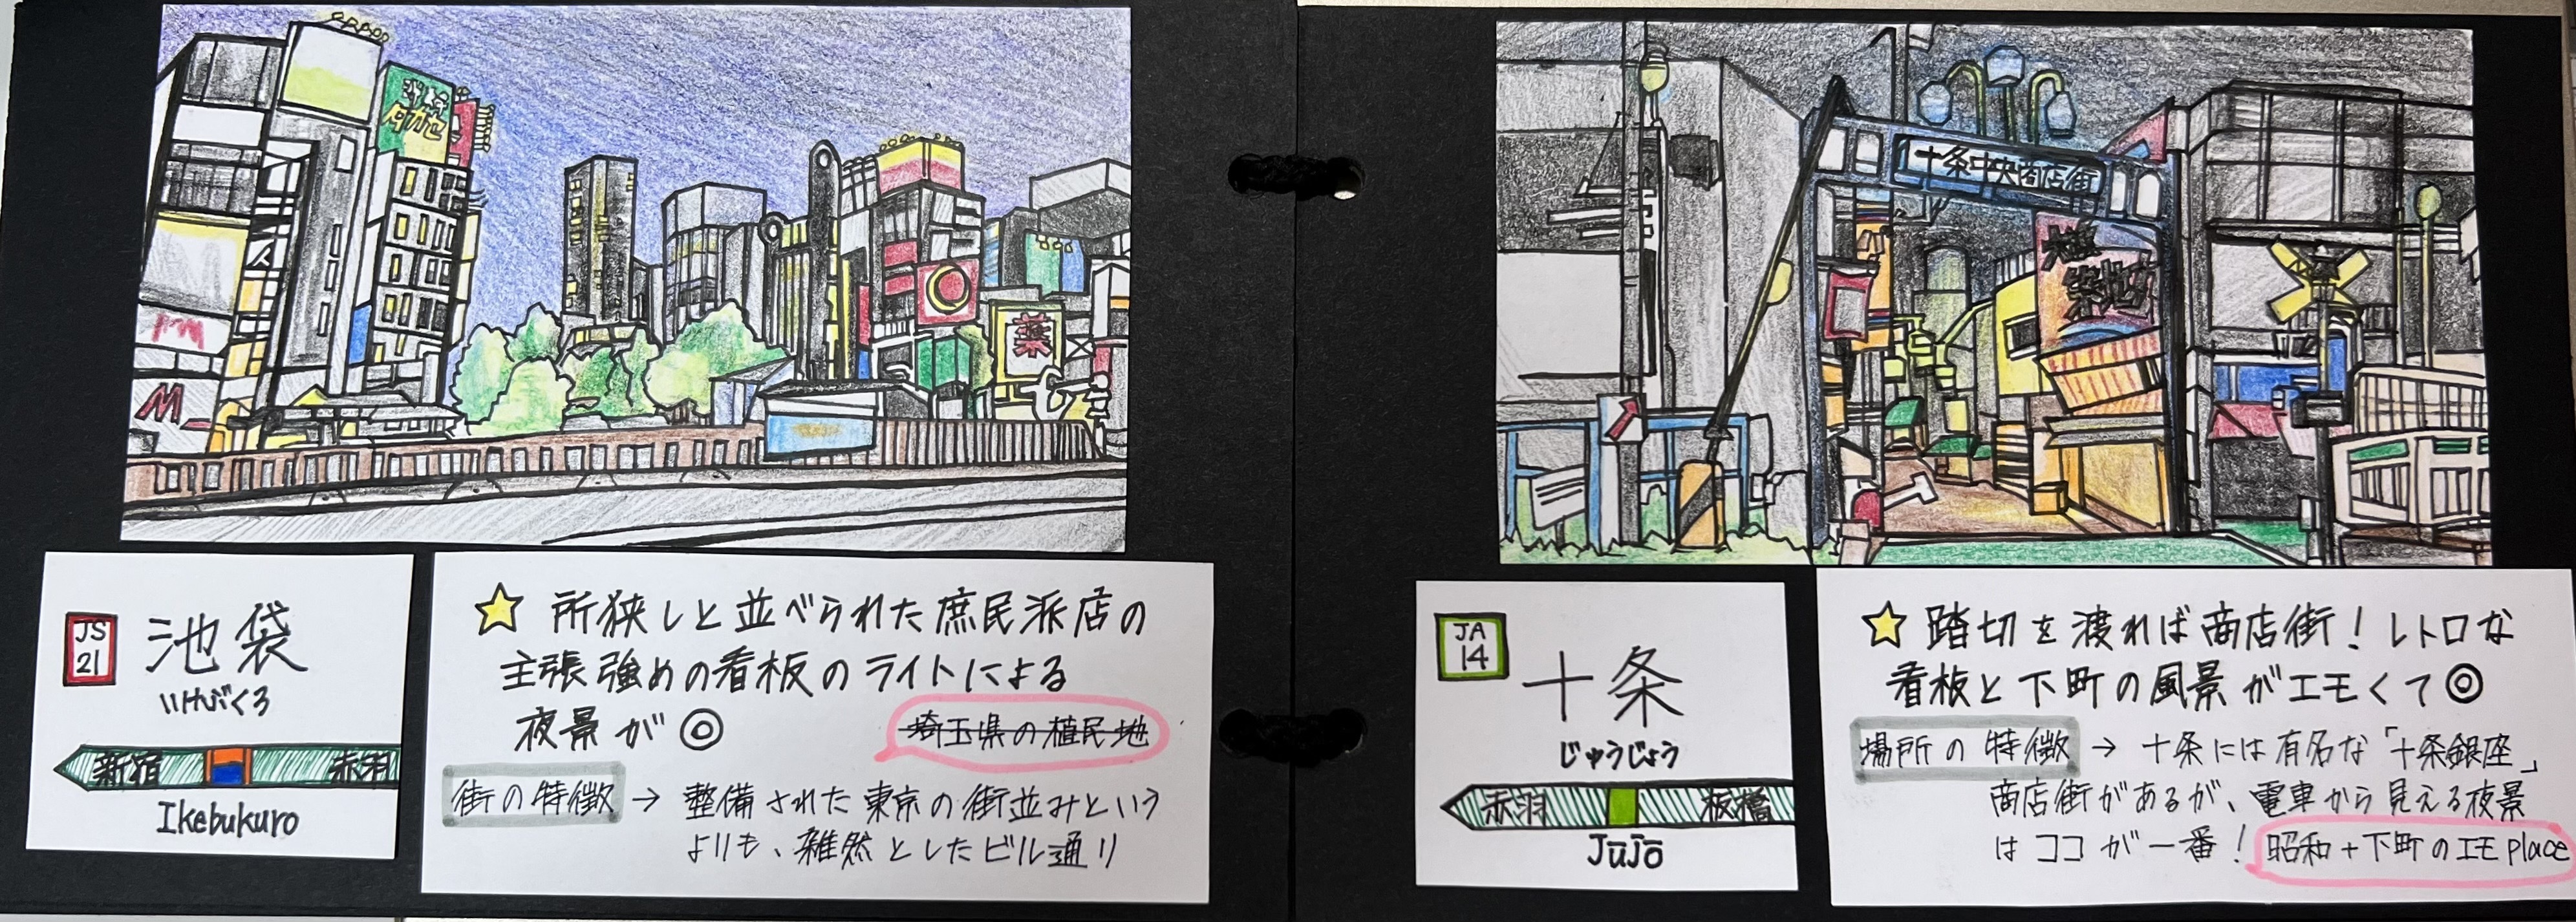 タカセ
M
薬
JS
21
池袋
いけぶくろ
新宿
赤羽
Ikebukuro
☆ 所狭しと並べられた庶民派店の
主張強めの看板のライトによる
夜景が◎
埼玉県の植民地
街の特徴 → 整備された東京の街並みという
よりも、雑然としたビル通り
十条中央商店街
JA
14
十条
じゅうじょう
赤羽
板橋
Jūjō
☆ 踏切を渡れば商店街！レトロな
看板と下町の風景がエモくて◎
場所の特徴 → 十条には有名な「十条銀座」
商店街があるが、電車から見える夜景
はココが一番！
昭和+下町のエモplace